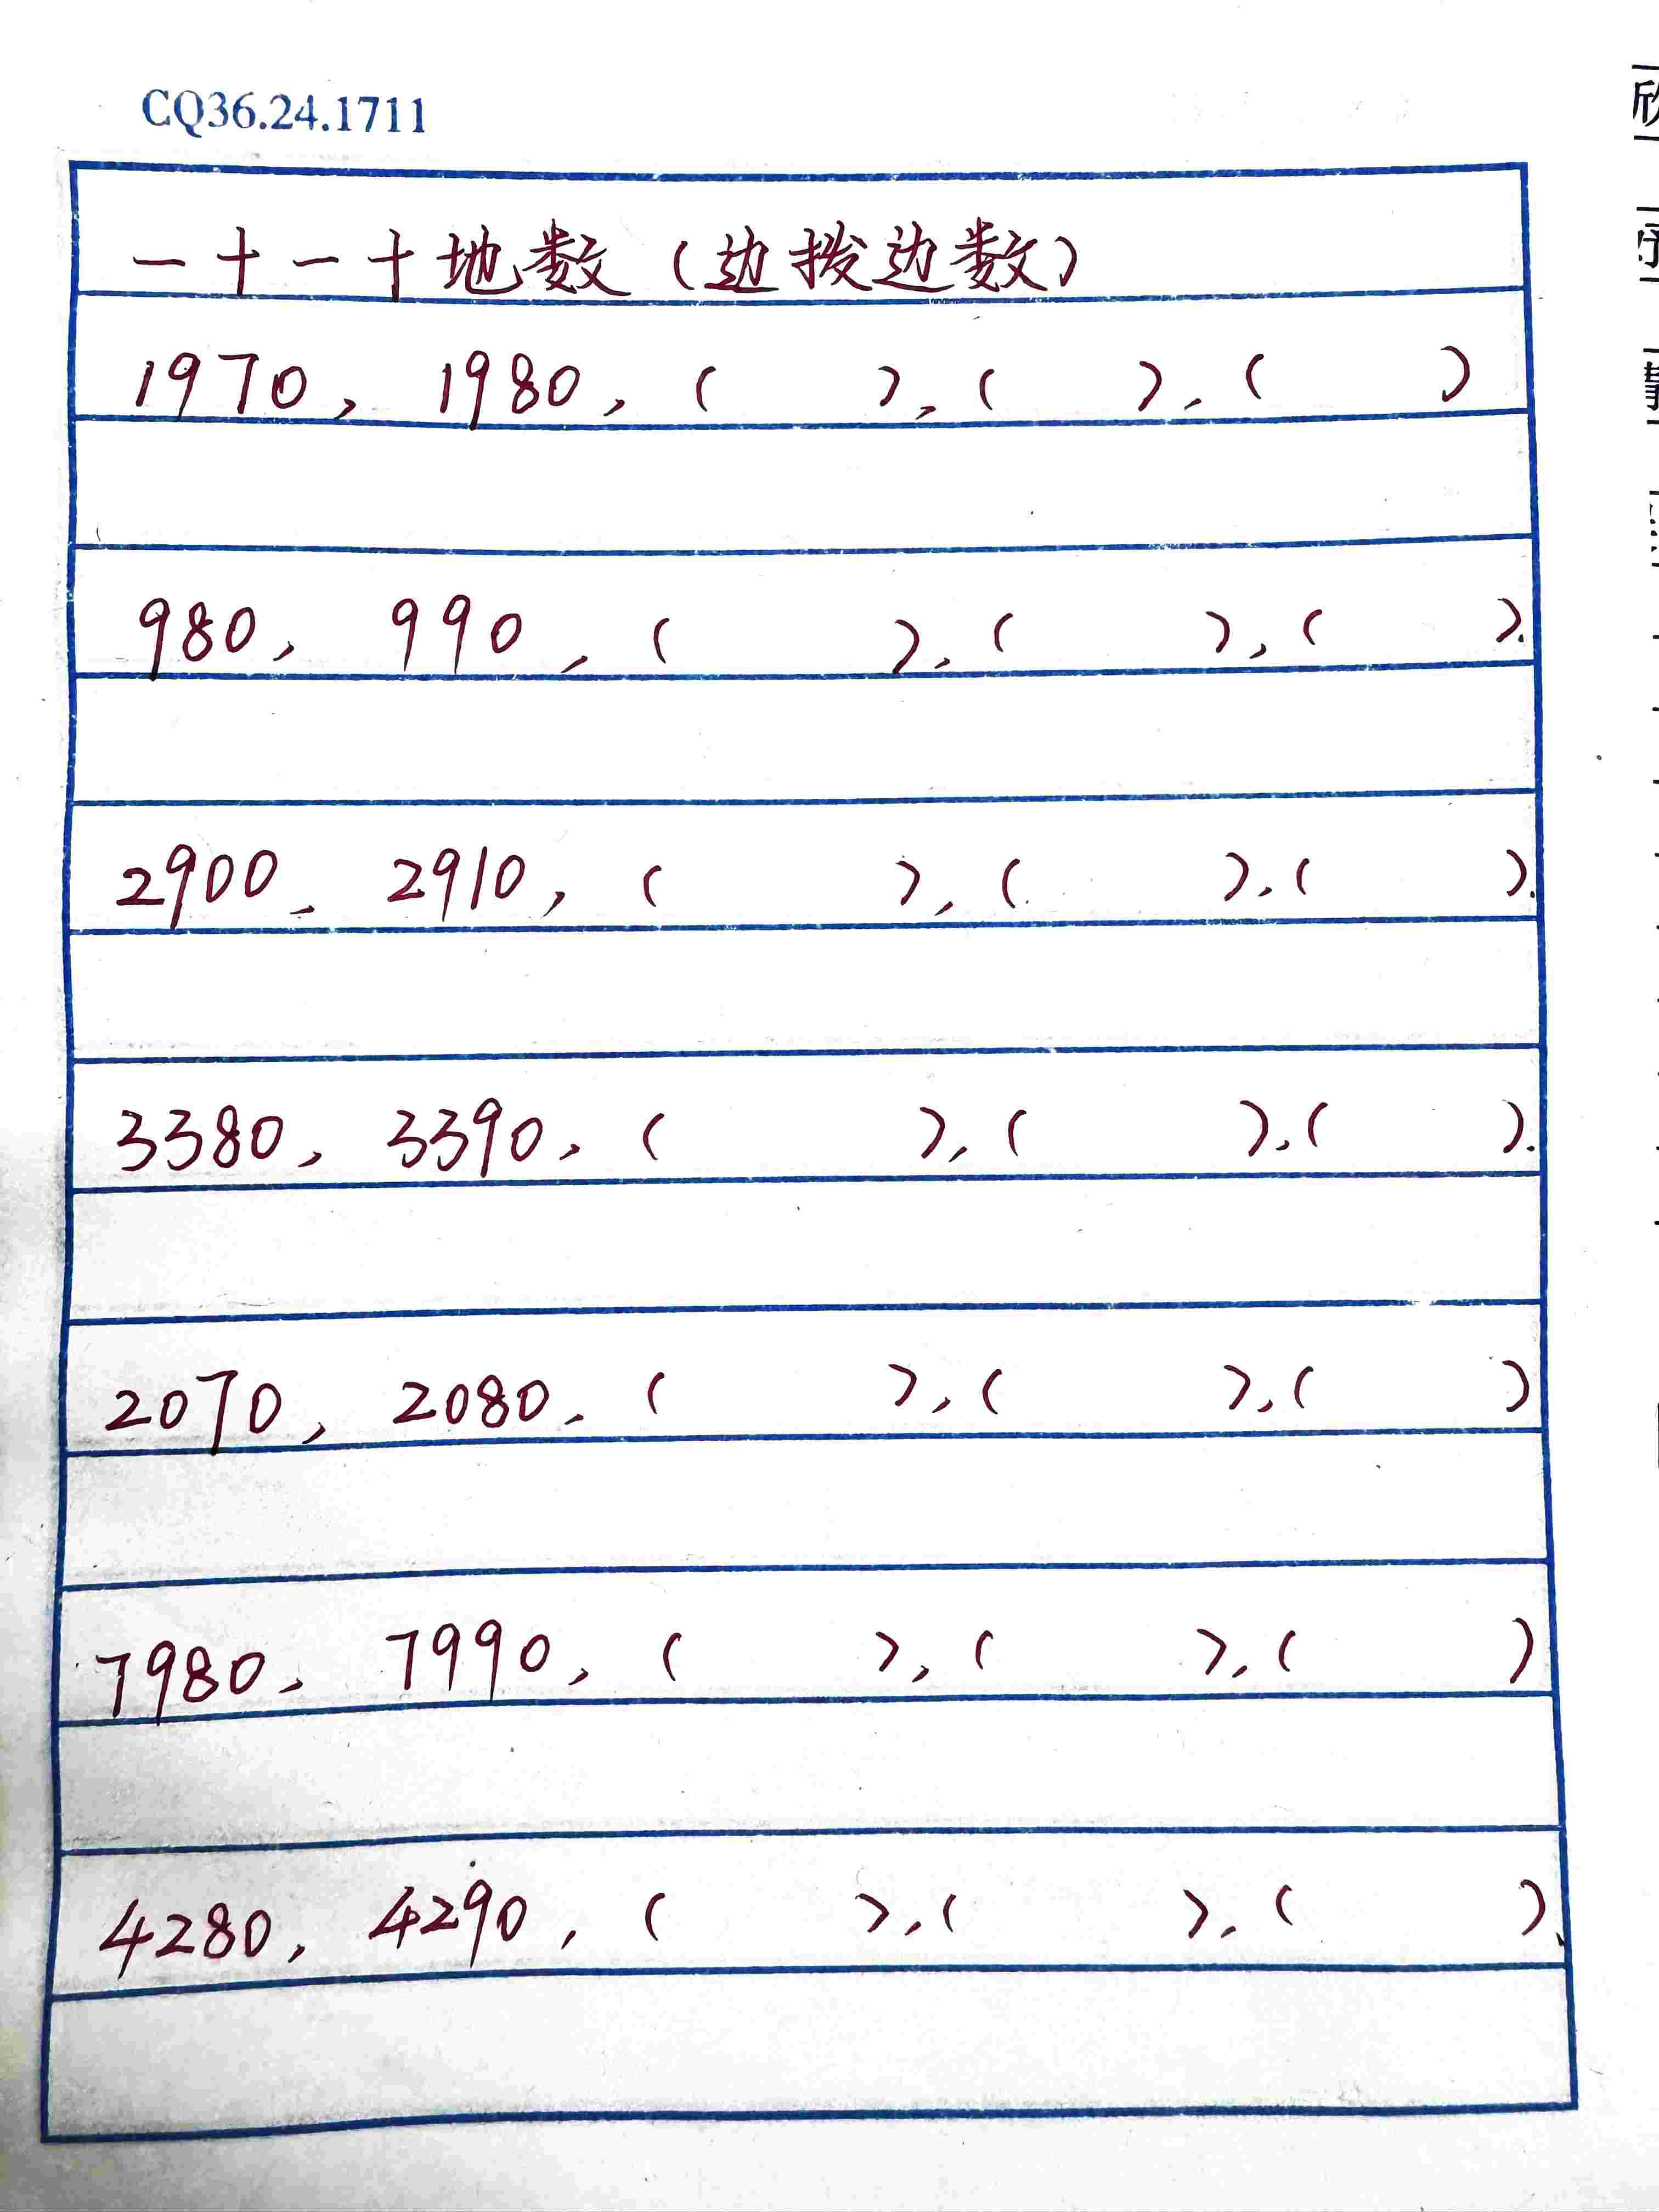 CQ36.24.1711
一十一十地数（边拨边数）
1970，1980，（ ），（ ），（ ）
980，990，（ ），（ ），（ ）.
2900，2910，（ ），（ ），（ ）.
3380，3390，（ ），（ ），（ ）.
2070，2080，（ ），（ ），（ ）
7980，7990，（ ），（ ），（ ）
4280，4290，（ ），（ ），（ ）.